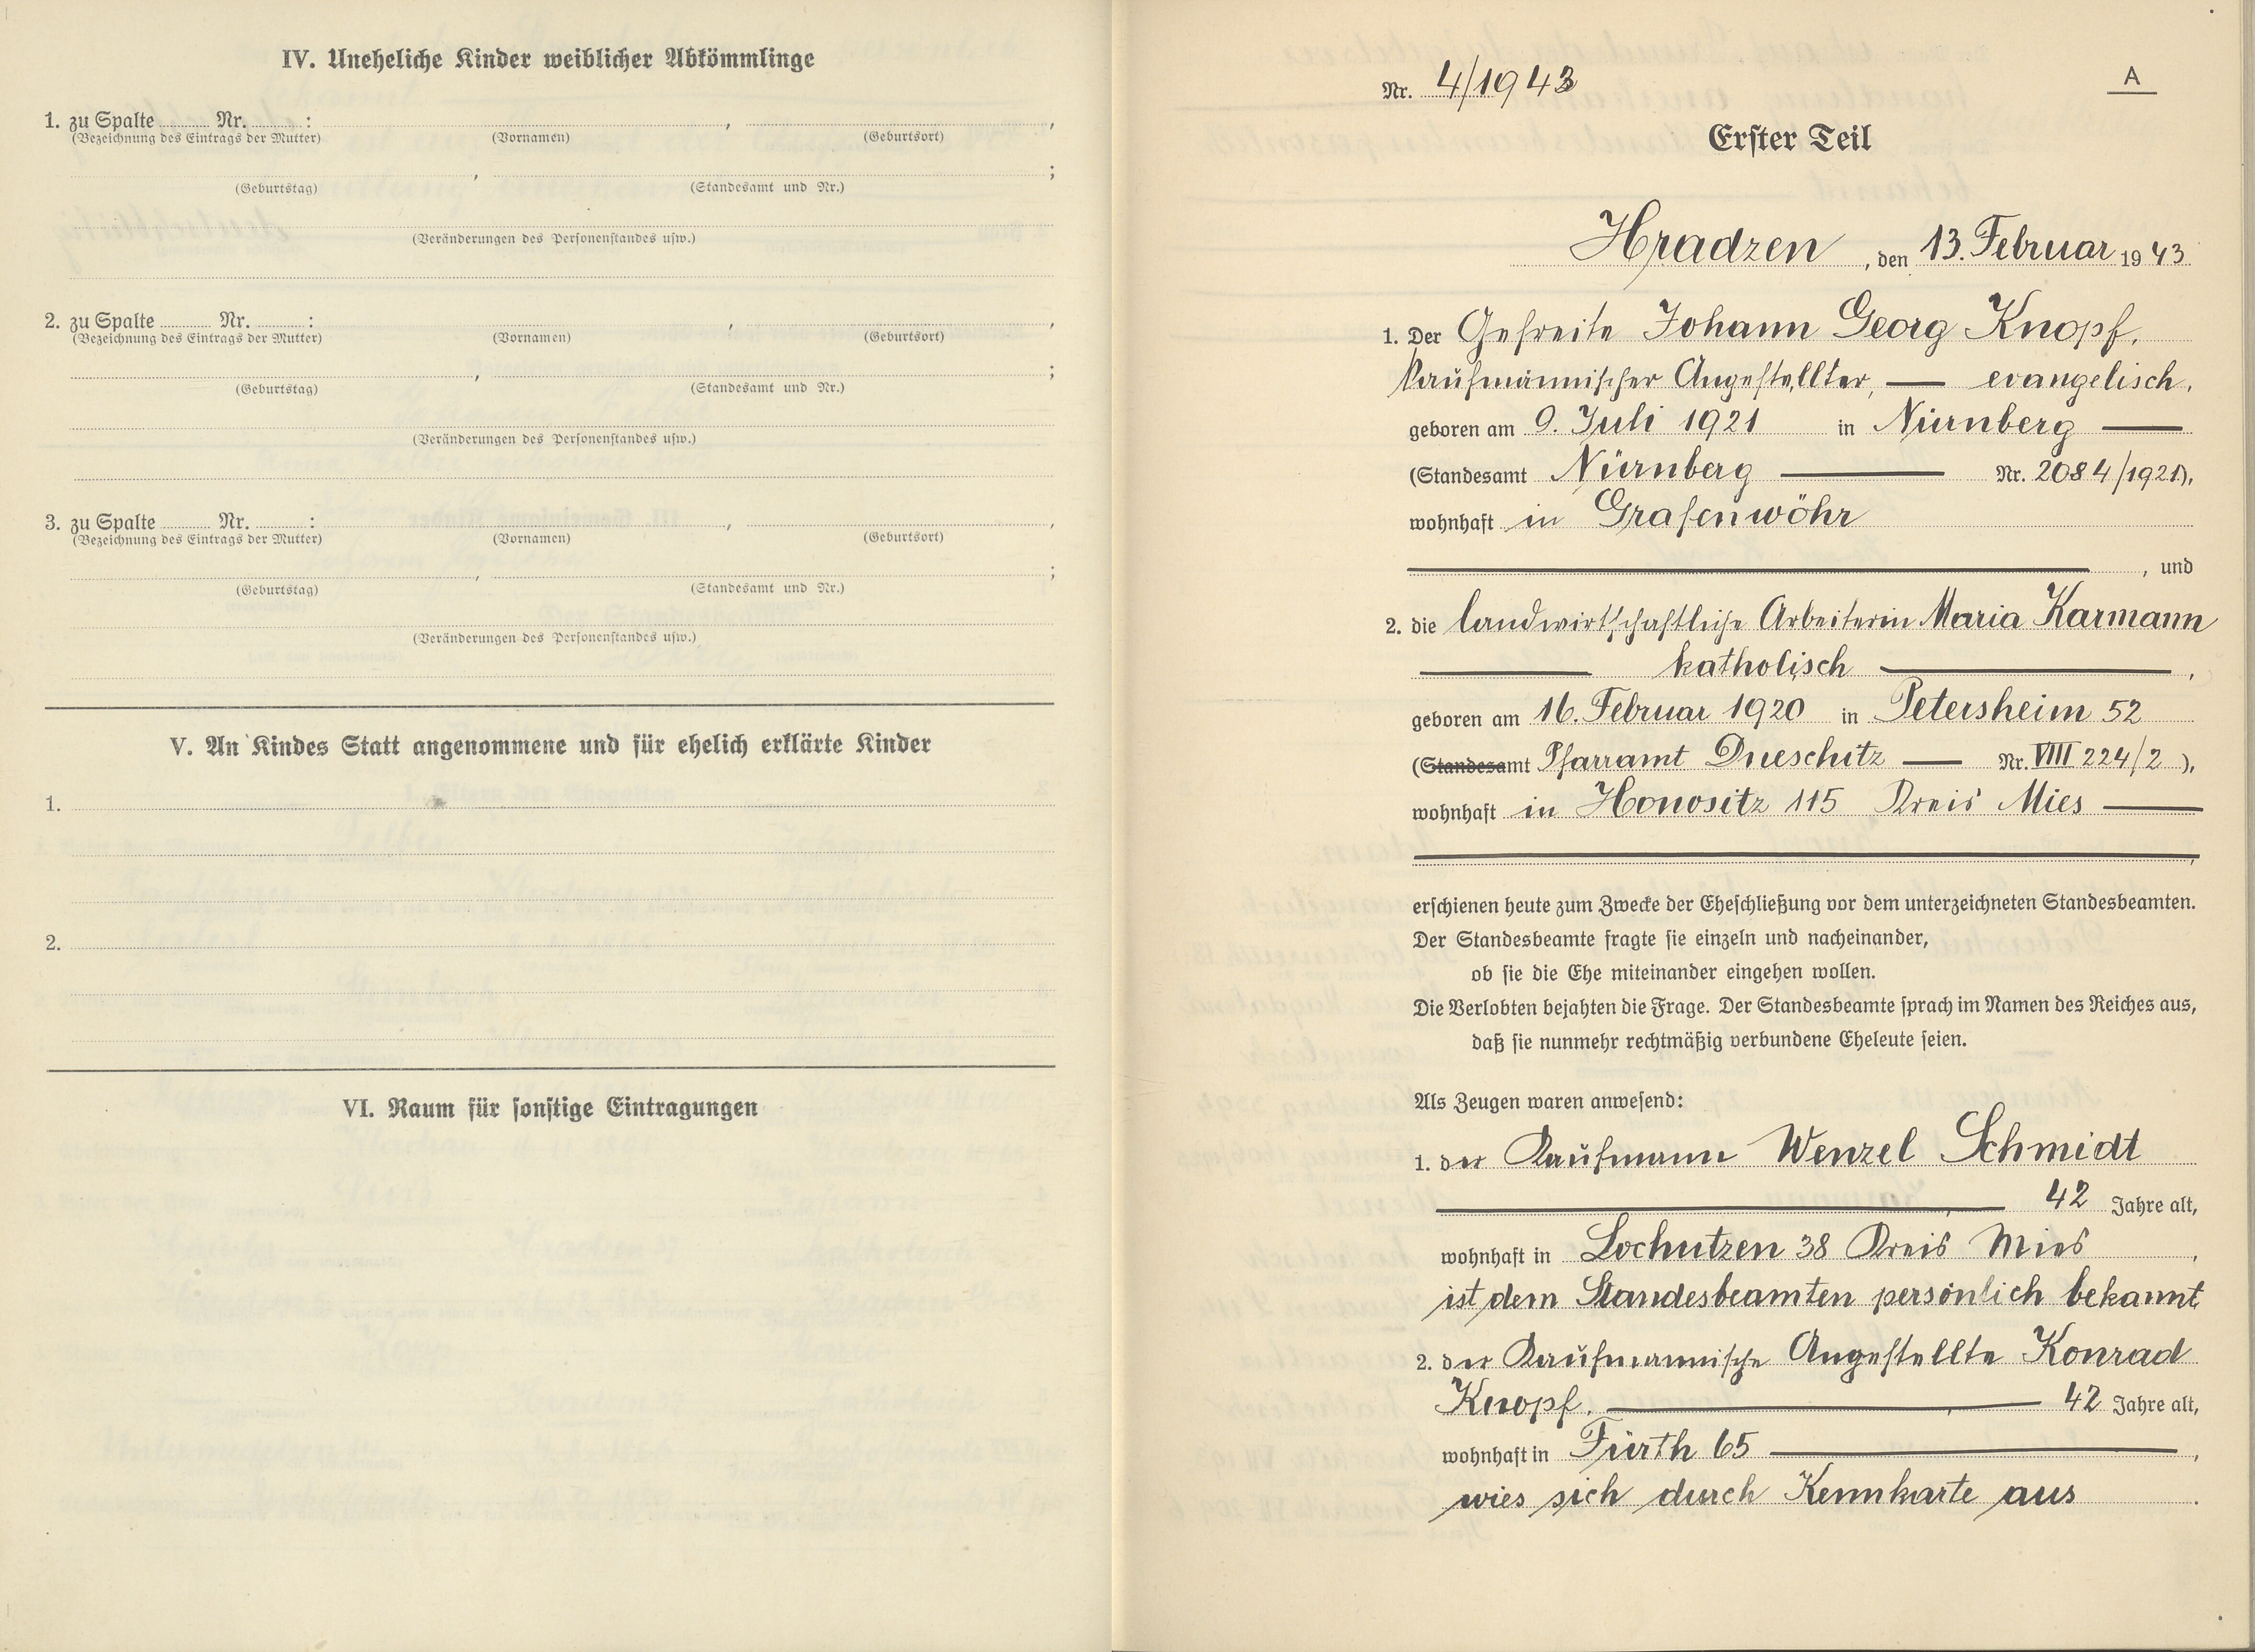 IV. Uneheliche Kinder weiblicher Abkömmlinge
1. zu Spalte Nr. : , ,
(Bezeichnung des Eintrags der Mutter) (Vornamen) (Geburtsort)
, ;
(Geburtstag) (Standesamt und Nr.)
(Veränderungen des Personenstandes usw.)
2. zu Spalte Nr. : , ,
(Bezeichnung des Eintrags der Mutter) (Vornamen) (Geburtsort)
, ;
(Geburtstag) (Standesamt und Nr.)
(Veränderungen des Personenstandes usw.)
3. zu Spalte Nr. : , ,
(Bezeichnung des Eintrags der Mutter) (Vornamen) (Geburtsort)
, ;
(Geburtstag) (Standesamt und Nr.)
(Veränderungen des Personenstandes usw.)
V. An Kindes Statt angenommene und für ehelich erklärte Kinder
1.
2.
VI. Raum für sonstige Eintragungen
A
Nr. 4/1943
Erster Teil
Hradzen, den 13. Februar 1943
1. Der Gefreite Johann Georg Knopf,
kaufmännischer Angestellter, — evangelisch,
geboren am 9. Juli 1921 in Nürnberg —
(Standesamt Nürnberg — Nr. 2084/1921),
wohnhaft in Grafenwöhr
, und
2. die landwirtschaftliche Arbeiterin Maria Karmann
— katholisch —,
geboren am 16. Februar 1920 in Petersheim 52
(Standesamt Pfarramt Dneschitz — Nr. VIII 224/2),
wohnhaft in Honositz 115 Kreis Mies —
,
erschienen heute zum Zwecke der Eheschließung vor dem unterzeichneten Standesbeamten.
Der Standesbeamte fragte sie einzeln und nacheinander,
ob sie die Ehe miteinander eingehen wollen.
Die Verlobten bejahten die Frage. Der Standesbeamte sprach im Namen des Reiches aus,
daß sie nunmehr rechtmäßig verbundene Eheleute seien.
Als Zeugen waren anwesend:
1. der Kaufmann Wenzel Schmidt
— 42 Jahre alt,
wohnhaft in Lochutzen 38 Kreis Mies,
ist dem Standesbeamten persönlich bekannt
2. der Kaufmannische Angestellte Konrad
Knopf, — 42 Jahre alt,
wohnhaft in Fürth 65 —,
wies sich durch Kennkarte aus.